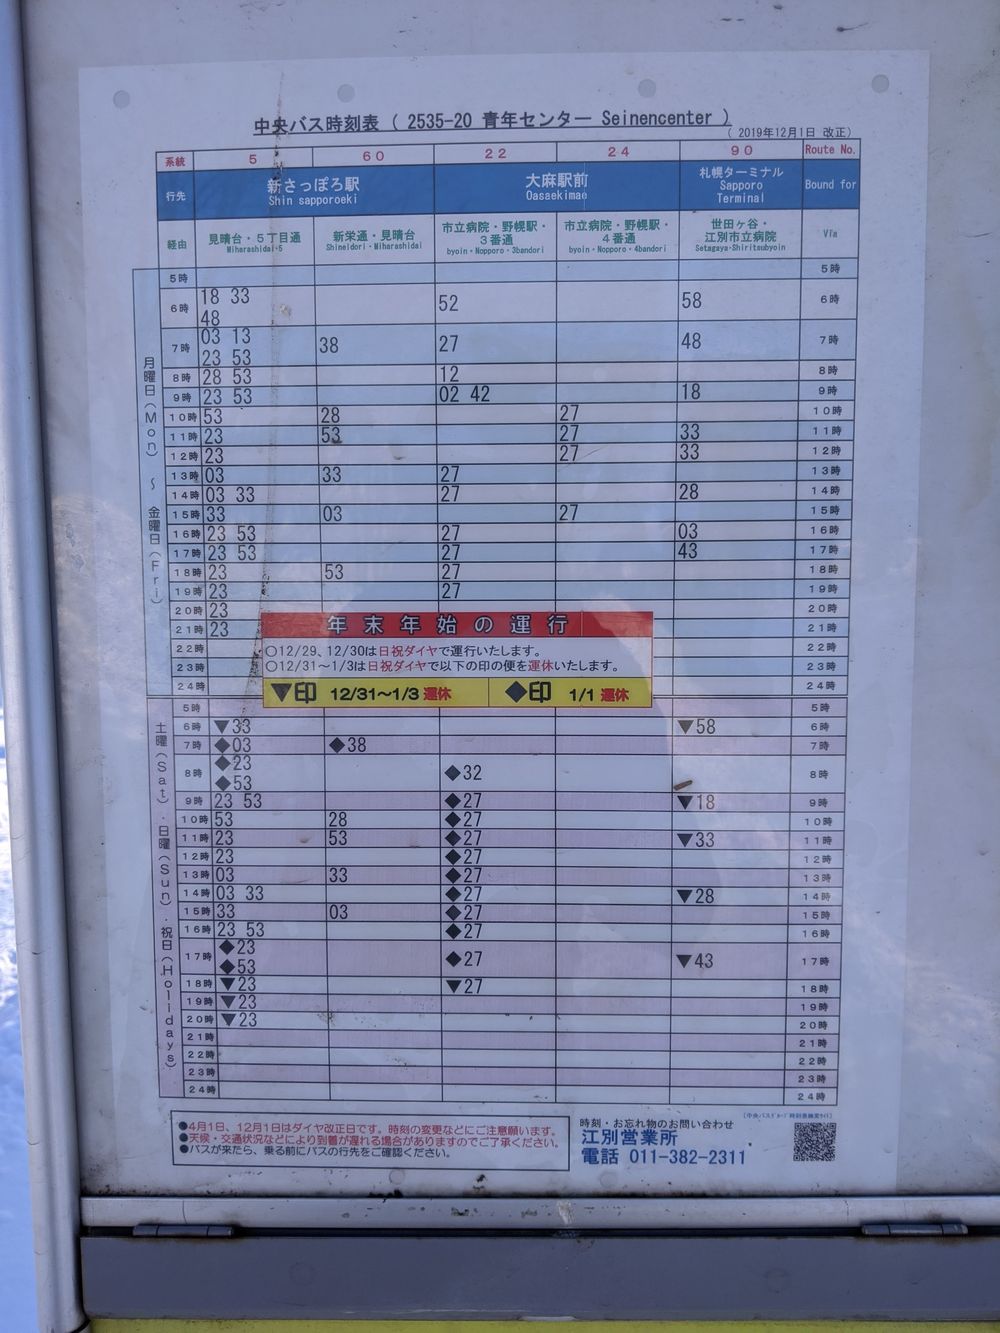 中央バス時刻表 ( 2535-20 青年センター Seinencenter )
( 2019年12月1日 改正)
系統 5 60 22 24 90 Route No.
行先 新さっぽろ駅 Shin sapporoeki 大麻駅前 Oasaekimae 札幌ターミナル Sapporo Terminal Bound for
経由 見晴台・5丁目通 Miharashidai・5 新栄通・見晴台 Shineidori・Miharashidai 市立病院・野幌駅・3番通 byoin・Nopporo・3bandori 市立病院・野幌駅・4番通 byoin・Nopporo・4bandori 世田ヶ谷・江別市立病院 Setagaya・Shiritsubyoin Via
月曜日(Mon) ~ 金曜日(Fri)
5時 5時
6時 18 33 48 52 58 6時
7時 03 13 23 53 38 27 48 7時
8時 28 53 12 8時
9時 23 53 02 42 18 9時
10時 53 28 27 10時
11時 23 53 27 33 11時
12時 23 27 33 12時
13時 03 33 27 13時
14時 03 33 27 28 14時
15時 33 03 27 15時
16時 23 53 27 03 16時
17時 23 53 27 43 17時
18時 23 53 27 18時
19時 23 27 19時
20時 23 20時
21時 23 21時
22時 22時
23時 23時
24時 24時
年末年始の運行
○12/29、12/30は日祝ダイヤで運行いたします。
○12/31～1/3は日祝ダイヤで以下の印の便を運休いたします。
▼印 12/31～1/3 運休 ◆印 1/1 運休
土曜(Sat)・日曜(Sun)・祝日(Holidays)
5時 5時
6時 ▼33 ▼58 6時
7時 ◆03 ◆38 7時
8時 ◆23 ◆53 ◆32 8時
9時 23 53 ◆27 ▼18 9時
10時 53 28 ◆27 10時
11時 23 53 ◆27 ▼33 11時
12時 23 ◆27 12時
13時 03 33 ◆27 13時
14時 03 33 ◆27 ▼28 14時
15時 33 03 ◆27 15時
16時 23 53 ◆27 16時
17時 ◆23 ◆53 ◆27 ▼43 17時
18時 ▼23 ▼27 18時
19時 ▼23 19時
20時 ▼23 20時
21時 21時
22時 22時
23時 23時
24時 24時
●4月1日、12月1日はダイヤ改正日です。時刻の変更などにご注意願います。
●天候・交通状況などにより到着が遅れる場合がありますのでご了承ください。
●バスが来たら、乗る前にバスの行先をご確認ください。
時刻・お忘れ物のお問い合わせ
江別営業所
電話 011-382-2311